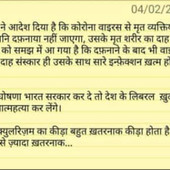 04/02/2
ने आदेश दिया है कि कोरोना वाइरस से मृत व्यक्ति
दफ़नाया नहीं जाएगा, उसके मृत शरीर का दाह
को समझ में आ गया है कि दफ़नाने के बाद भी वाइ
दाह संस्कार ही उसके साथ सारे इन्फ़ेक्शन ख़त्म
घोषणा भारत सरकार कर दे तो देश के लिबरल
आत्महत्या कर लेंगे।
क्युलरिज़्म का कीड़ा बहुत ख़तरनाक कीड़ा होता है
से ज़्यादा ख़तरनाक...